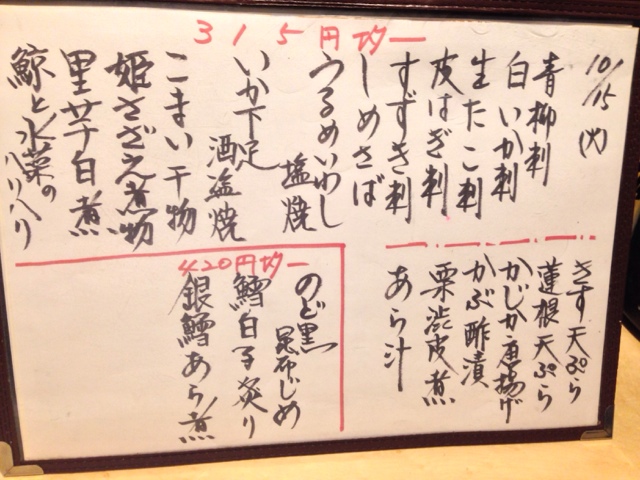 10/15(火)
315円均一
青柳刺
白いか刺
生たこ刺
皮はぎ刺
すずき刺
しめさば
うるめいわし
塩焼
いか下足
酒塩焼
こまい干物
姫さざえ煮物
里芋白煮
鯨と水菜の
ハリハリ
きす天ぷら
蓮根天ぷら
かじか唐揚げ
かぶ酢漬
栗渋皮煮
あら汁
420円均一
のど黒
昆布じめ
鱈白子炙り
銀鱈あら煮